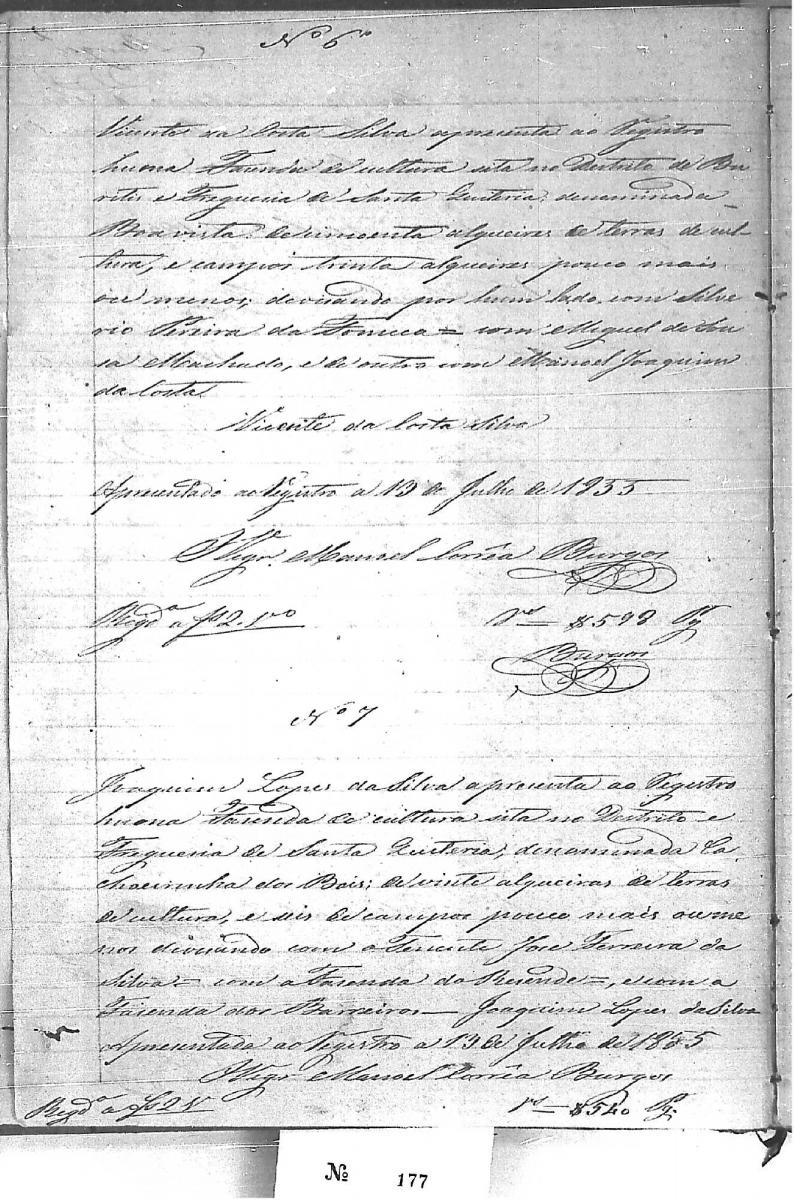 Nº 6º
Vicente da Costa Silva apresenta ao Registro
huma Fazenda de cultura sita no Destrito de Bu
ritis e Freguesia de Santa Quiteria, denominada
Boa vista: de cincoenta alqueires de terras de cul-
tura, e campos trinta alqueires pouco mais
ou menos, devisando por hum lado com Silve
rio Pereira da Fonseca = com Miguel de Sou
sa Machado, e de outro com Manoel Joaquim
da Costa.
Vicente da Costa Silva
Apresentado ao Registro a 13 de Julho de 1855
O Vigrº Manoel Corrêa Burgos
Regdª a fs 2. vº
rs = $598 Pg
Burgos
Nº 7
Joaquim Lopes da Silva apresenta ao Registro
huma Fazenda de cultura sita no Destrito e
Freguesia de Santa Quiteria, denominada Ca
choeirinha dos Bois; de vinte alqueires de terras
de cultura, e seis de campos pouco mais ou me
nos devisando com o Tenente Jose Ferreira da
Silva = com a Fazenda do Resende =, e com a
Fazenda dos Barreiros — Joaquim Lopes da Silva
Apresentada ao Registro a 13 de Julho de 1855
O Vigrº Manoel Corrêa Burgos
Regdª a fs 2 vº
rs — $540 Pg.
Nº 177